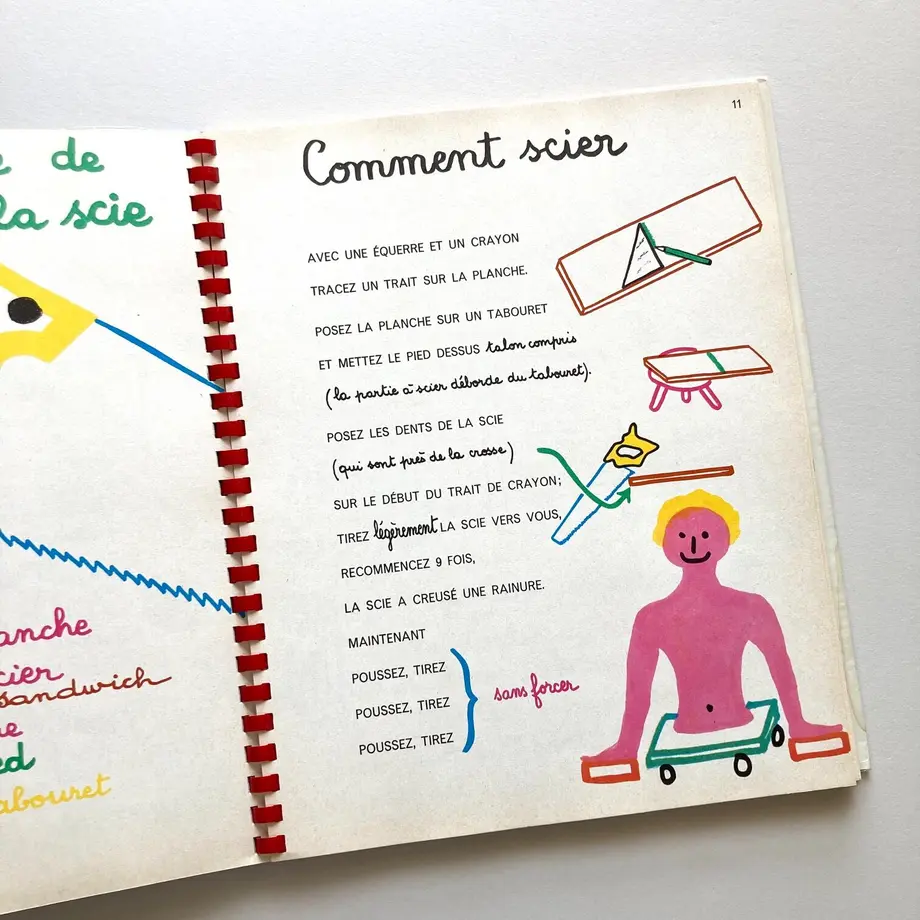 de
la scie
anche
cier
sandwich
e
ed
abouret
11
Comment scier
AVEC UNE ÉQUERRE ET UN CRAYON
TRACEZ UN TRAIT SUR LA PLANCHE.
POSEZ LA PLANCHE SUR UN TABOURET
ET METTEZ LE PIED DESSUS talon compris
(la partie à scier déborde du tabouret).
POSEZ LES DENTS DE LA SCIE
(qui sont près de la crosse)
SUR LE DÉBUT DU TRAIT DE CRAYON;
TIREZ légèrement LA SCIE VERS VOUS,
RECOMMENCEZ 9 FOIS,
LA SCIE A CREUSÉ UNE RAINURE.
MAINTENANT
POUSSEZ, TIREZ
POUSSEZ, TIREZ
POUSSEZ, TIREZ
sans forcer